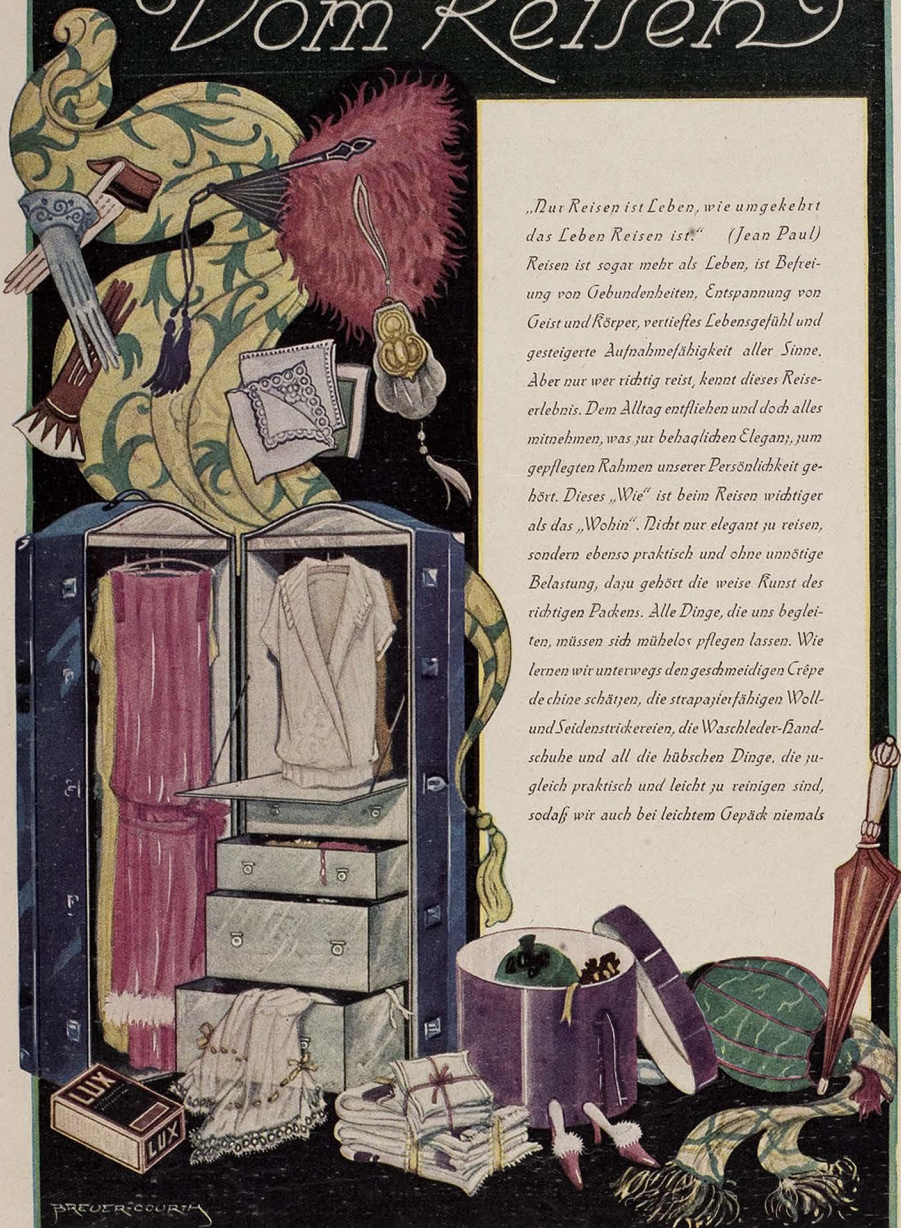 Vom Reisen
„Nur Reisen ist Leben, wie umgekehrt
das Leben Reisen ist.“ (Jean Paul)
Reisen ist sogar mehr als Leben, ist Befrei-
ung von Gebundenheiten, Entspannung von
Geist und Körper, vertieftes Lebensgefühl und
gesteigerte Aufnahmefähigkeit aller Sinne.
Aber nur wer richtig reist, kennt dieses Reise-
erlebnis. Dem Alltag entfliehen und doch alles
mitnehmen, was zur behaglichen Eleganz, zum
gepflegten Rahmen unserer Persönlichkeit ge-
hört. Dieses „Wie“ ist beim Reisen wichtiger
als das „Wohin“. Nicht nur elegant zu reisen,
sondern ebenso praktisch und ohne unnötige
Belastung, dazu gehört die weise Kunst des
richtigen Packens. Alle Dinge, die uns beglei-
ten, müssen sich mühelos pflegen lassen. Wie
lernen wir unterwegs den geschmeidigen Crêpe
de chine schätzen, die strapazierfähigen Woll-
und Seidenstrickereien, die Waschleder-Hand-
schuhe und all die hübschen Dinge, die zu-
gleich praktisch und leicht zu reinigen sind,
sodaß wir auch bei leichtem Gepäck niemals
LUX
LUX
BREUER-COURTH